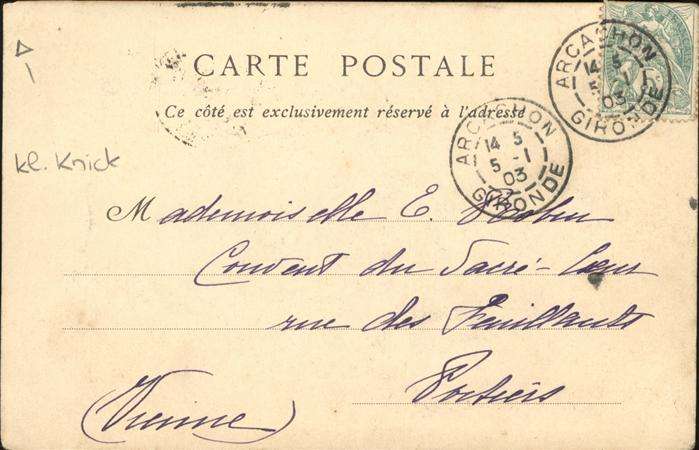 CARTE POSTALE
Ce côté est exclusivement réservé à l'adresse
ARCACHON
14 5
5 -1
03
GIRONDE
ARCACHON
14 5
5 -1
03
GIRONDE
kl. Knick
Mademoiselle E. Robin
Couvent du Sacré-Cœur
rue des Feuillants
Poitiers
(Vienne)